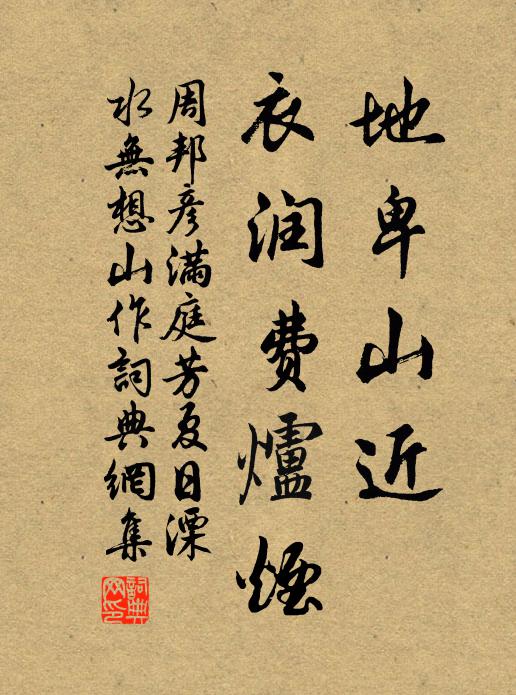 地卑山近
衣润費爐煙
周邦彥滿庭芳夏日溧
水無想山作詞典網集
詞典
网印